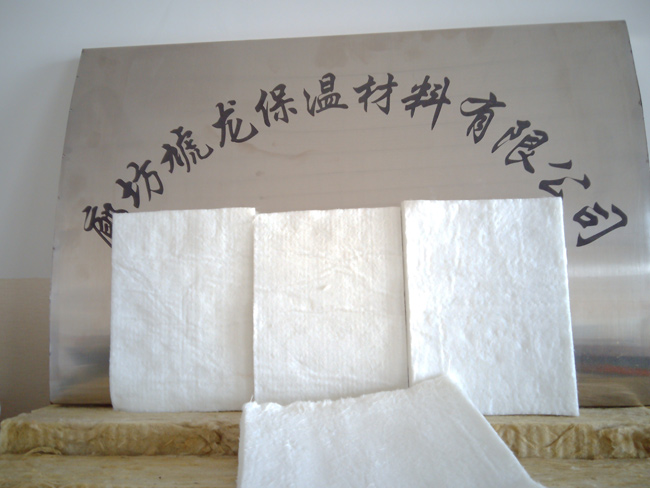 廊坊琥龙保温材料有限公司